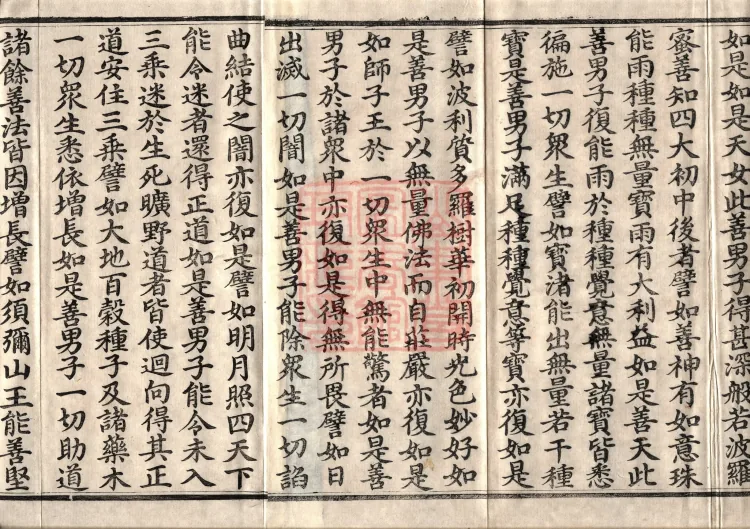 如是如是天女此善男子得甚深般若波羅
蜜善知四大初中後者譬如善神有如意珠
能雨種種無量寶雨有大利益如是善天此
善男子復能雨於種種覺意無量諸寶皆悉
徧施一切衆生譬如寶渚能出無量若干種
寶是善男子滿足種種覺意等寶亦復如是
譬如波利質多羅樹華初開時光色妙好如
是善男子以無量佛法而自莊嚴亦復如是
如師子王於一切衆生中無能驚者如是善
男子於諸衆中亦復如是得無所畏譬如日
出滅一切闇如是善男子能除衆生一切諂
曲結使之闇亦復如是譬如明月照四天下
能令迷者還得正道如是善男子能令未入
三乘迷於生死曠野道者皆使迴向得其正
道安住三乘譬如大地百穀種子及諸藥木
一切衆生悉依增長如是善男子一切助道
諸餘善法皆因增長譬如須彌山王能善堅